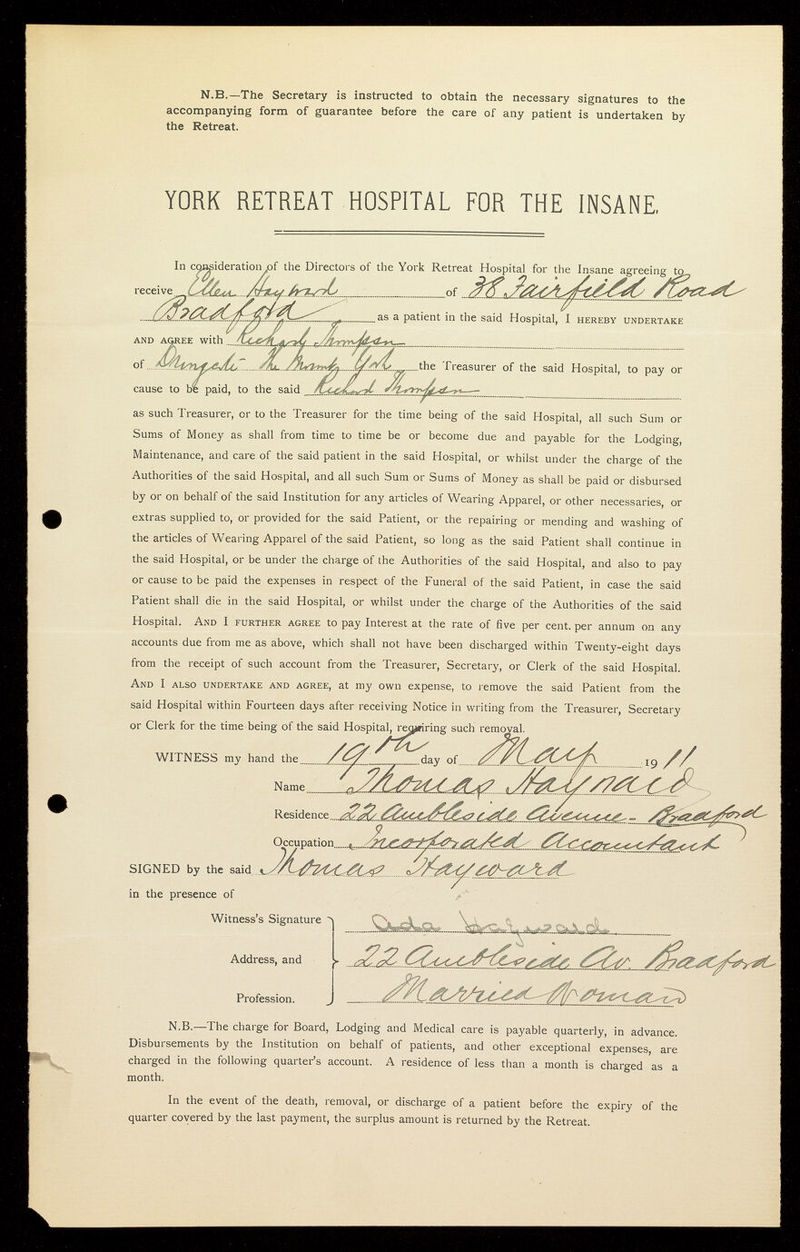 N.B.—The Secretary is instructed to obtain the necessary signatures to the
accompanying form of guarantee before the care of any patient is undertaken by
the Retreat.
YORK RETREAT HOSPITAL FOR THE INSANE.
In consideration of the Directors of the York Retreat Hospital for the Insane agreeing to
receive Ellen Hayward of 38 Fairfield Road
Bradford as a patient in the said Hospital, I HEREBY UNDERTAKE
AND AGREE with Richard Thompson
of Dringcote The Mount York the Treasurer of the said Hospital, to pay or
cause to be paid, to the said Richard Thompson
as such Treasurer, or to the Treasurer for the time being of the said Hospital, all such Sum or
Sums of Money as shall from time to time be or become due and payable for the Lodging,
Maintenance, and care of the said patient in the said Hospital, or whilst under the charge of the
Authorities of the said Hospital, and all such Sum or Sums of Money as shall be paid or disbursed
by or on behalf of the said Institution for any articles of Wearing Apparel, or other necessaries, or
extras supplied to, or provided for the said Patient, or the repairing or mending and washing of
the articles of Wearing Apparel of the said Patient, so long as the said Patient shall continue in
the said Hospital, or be under the charge of the Authorities of the said Hospital, and also to pay
or cause to be paid the expenses in respect of the Funeral of the said Patient, in case the said
Patient shall die in the said Hospital, or whilst under the charge of the Authorities of the said
Hospital. AND I FURTHER AGREE to pay Interest at the rate of five per cent. per annum on any
accounts due from me as above, which shall not have been discharged within Twenty-eight days
from the receipt of such account from the Treasurer, Secretary, or Clerk of the said Hospital.
AND I ALSO UNDERTAKE AND AGREE, at my own expense, to remove the said Patient from the
said Hospital within Fourteen days after receiving Notice in writing from the Treasurer, Secretary
or Clerk for the time being of the said Hospital, requiring such removal.
WITNESS my hand the 19th day of May 1911
Name Thomas Hayward
Residence 22 Ambleside Avenue - Bradford
Occupation Incorporated Accountant
SIGNED by the said Thomas Hayward
in the presence of
Witness's Signature Ada Hayward.
Address, and 22 Ambleside Av. Bradford
Profession. Married Woman
N.B.—The charge for Board, Lodging and Medical care is payable quarterly, in advance.
Disbursements by the Institution on behalf of patients, and other exceptional expenses, are
charged in the following quarter's account. A residence of less than a month is charged as a
month.
In the event of the death, removal, or discharge of a patient before the expiry of the
quarter covered by the last payment, the surplus amount is returned by the Retreat.